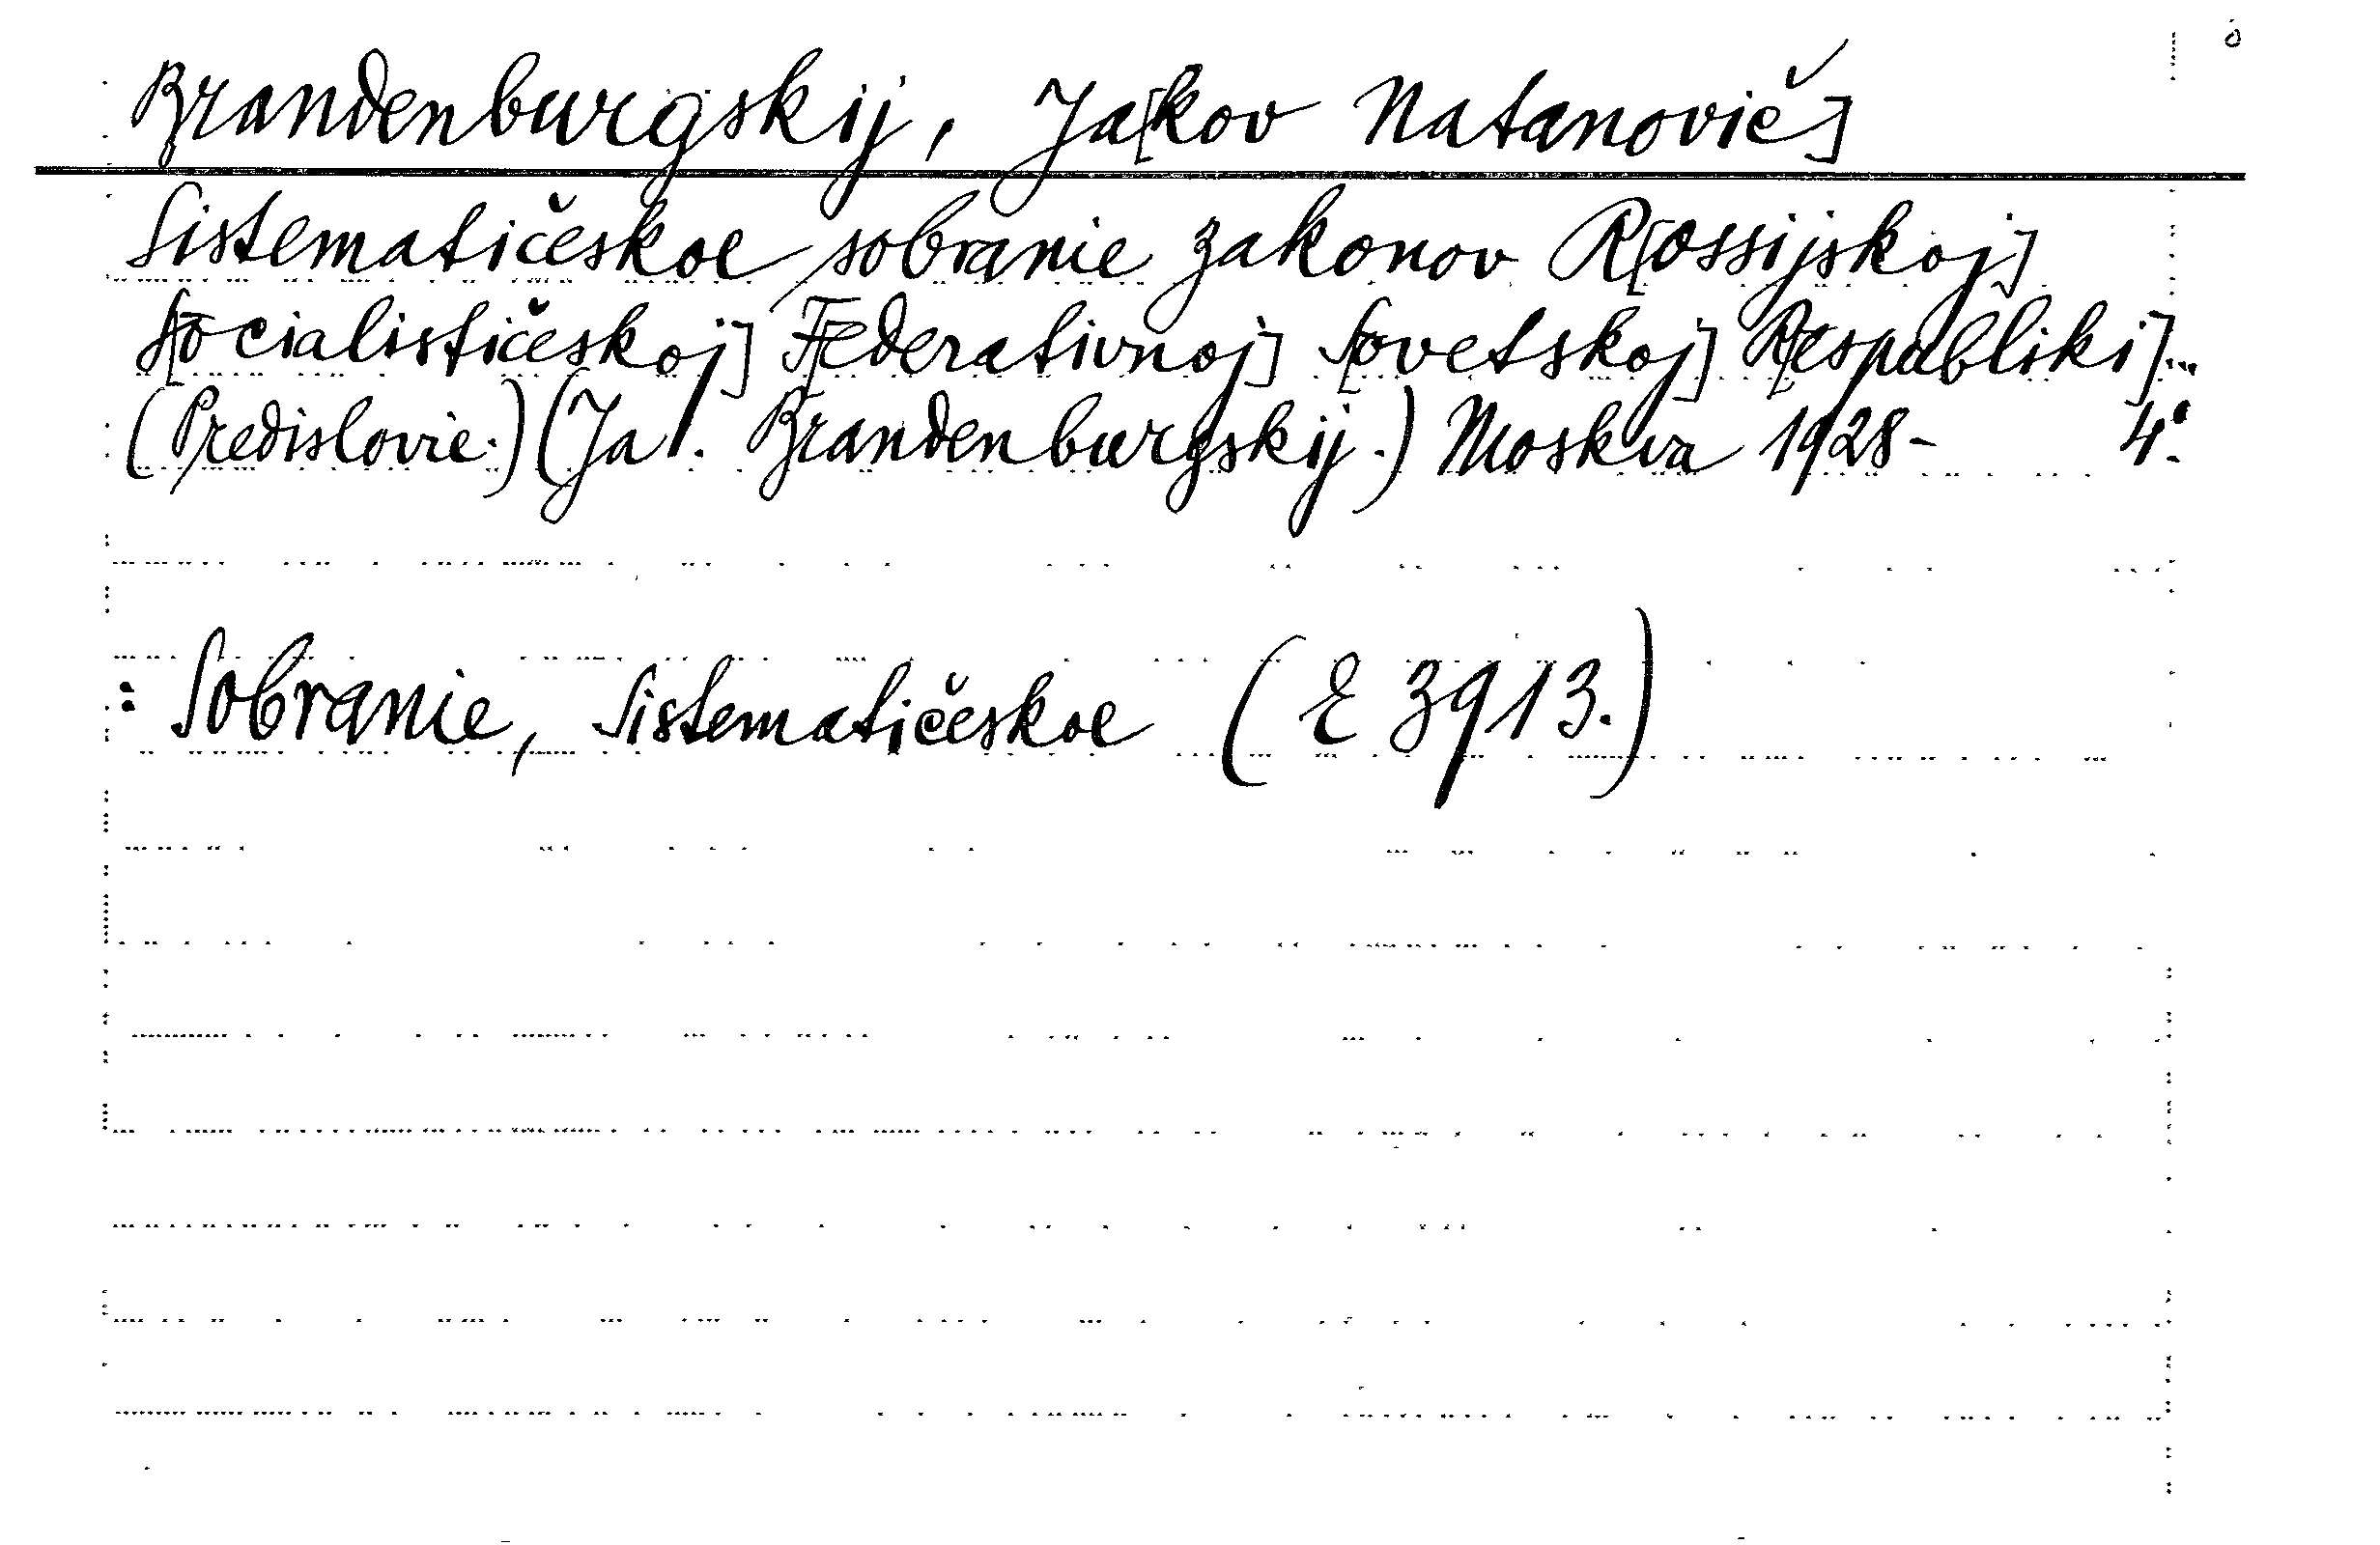 Brandenburgskij, Ja[kov Natanovič]
Sistematičeskoe sobranie zakonov R[ossijskoj]
S[ocialističeskoj] F[ederativnoj] S[ovetskoj] R[espubliki]...
(Predislovie.) (Ja. Brandenburgskij.) Moskva 1928- 4°.
: Sobranie, Sistematičeskoe (E 3913.)